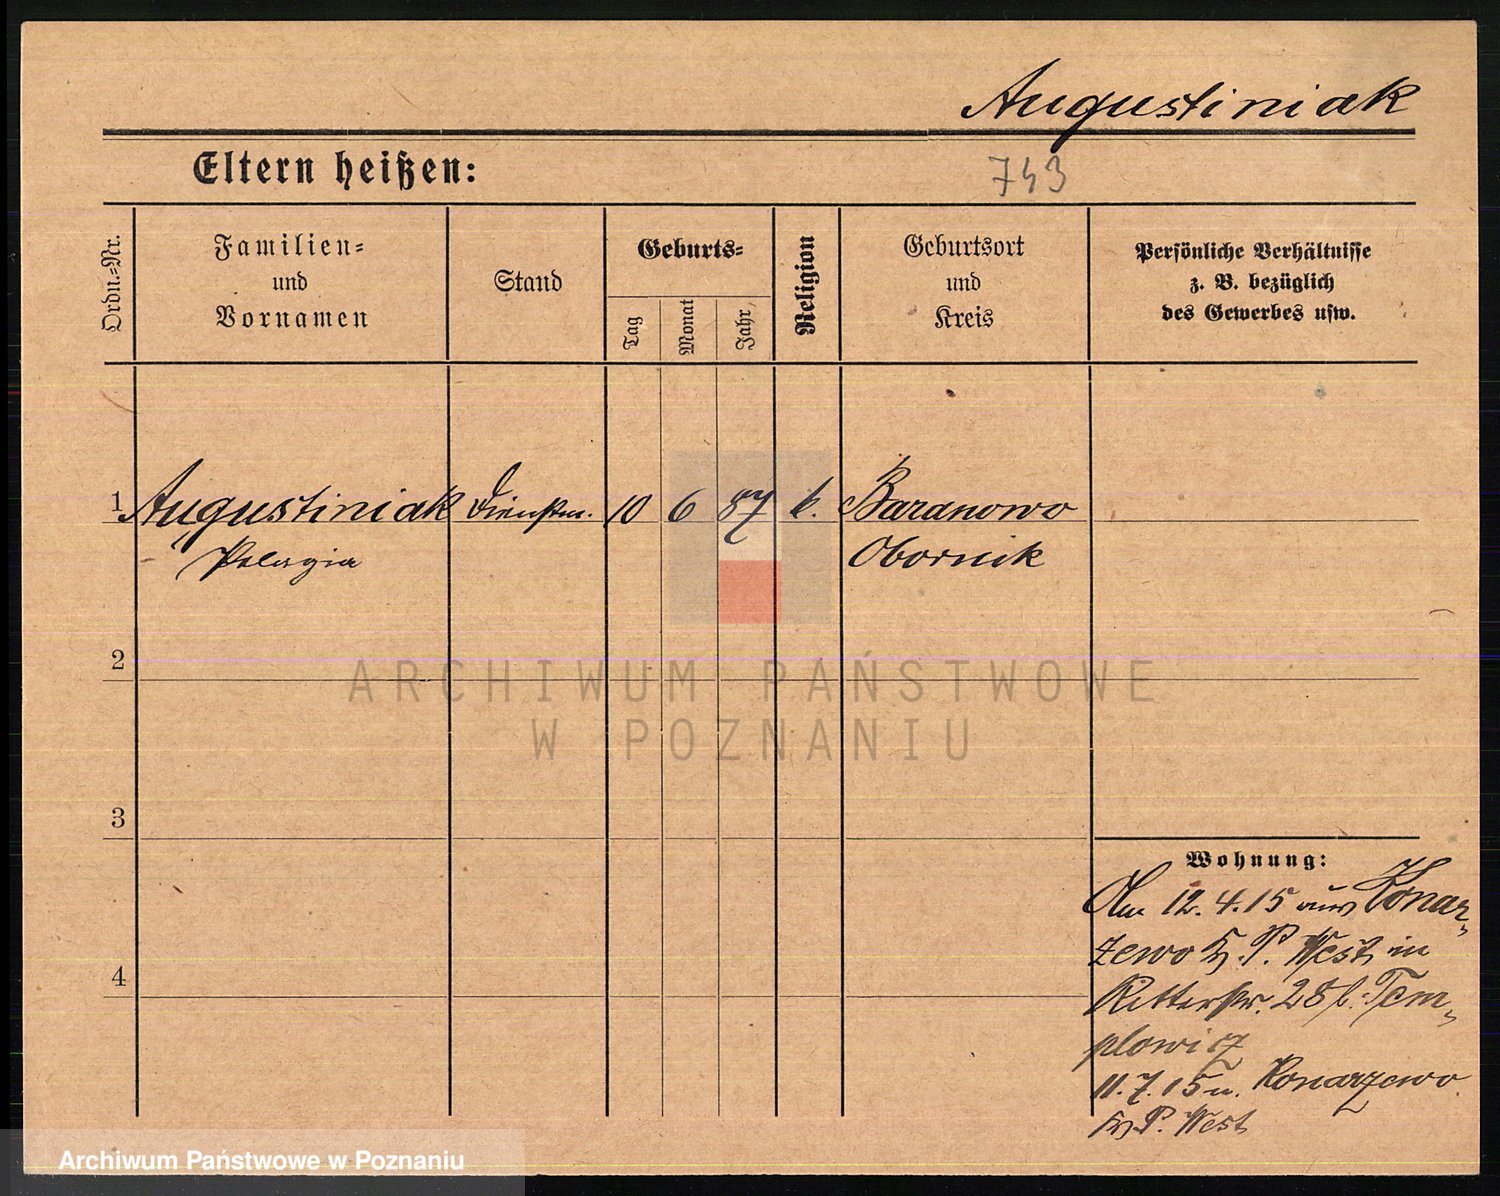 Augustiniak
Eltern heißen:
743
Ordn.-Nr.
Familien-
und
Vornamen
Stand
Geburts-
Tag
Monat
Jahr
Religion
Geburtsort
und
Kreis
Persönliche Verhältnisse
z. B. bezüglich
des Gewerbes usw.
1 Augustiniak Dienstm. 10 6 87 k. Baranowo
Pelagia Obornik
2
ARCHIWUM PAŃSTWOWE
W POZNANIU
3
Wohnung:
Am 12.4.15 aus Konar-
zewo Kr. P. West in
4
Ritterstr. 28 b. Tem-
plowicz
11.7.15 n. Konarzewo
Kr. P. West
Archiwum Państwowe w Poznaniu